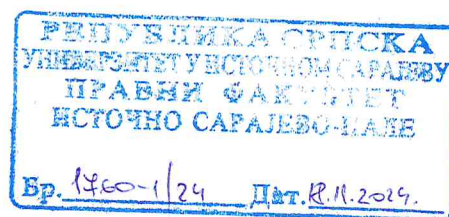 РЕПУБЛИКА СРПСКА
УНИВЕРЗИТЕТ У ИСТОЧНОМ САРАЈЕВУ
ПРАВНИ ФАКУЛТЕТ
ИСТОЧНО САРАЈЕВО-ПАЛЕ
Бр. 1760-1/24 Дат. 18.11.2024.